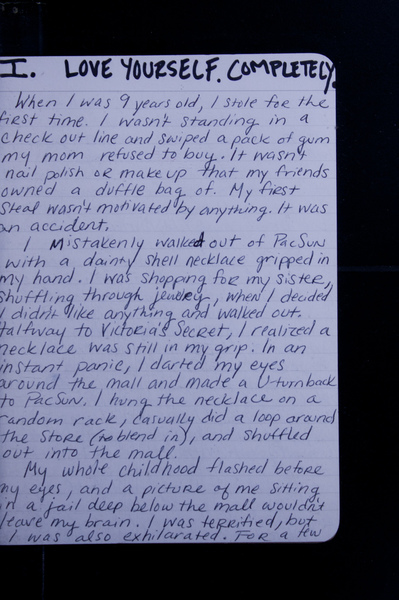 I. LOVE YOURSELF. COMPLETELY.
When I was 9 years old, I stole for the
first time. I wasn't standing in a
check out line and swiped a pack of gum
my mom refused to buy. It wasn't
nail polish or make up that my friends
owned a duffle bag of. My first
steal wasn't motivated by anything. It was
an accident.
I mistakenly walked out of PacSun
with a dainty shell necklace gripped in
my hand. I was shopping for my sister,
shuffling through jewelry, when I decided
I didn't like anything and walked out.
Halfway to Victoria's Secret, I realized a
necklace was still in my grip. In an
instant panic, I darted my eyes
around the mall and made a U-turn back
to PacSun. I hung the necklace on a
random rack, casually did a loop around
the store (to blend in), and shuffled
out into the mall.
My whole childhood flashed before
my eyes, and a picture of me sitting
in a jail deep below the mall wouldn't
leave my brain. I was terrified, but
I was also exhilarated. For a few